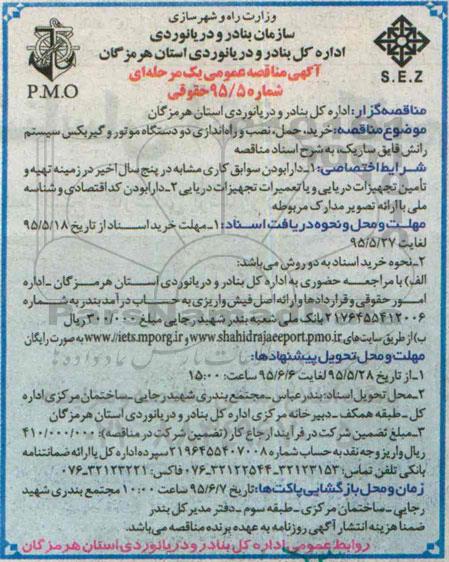 وزارت راه و شهرسازی
سازمان بنادر و دریانوردی
اداره کل بنادر و دریانوردی استان هرمزگان
آگهی مناقصه عمومی یک مرحله‌ای
شماره ۹۵/۵ حقوقی
P.M.O
S.E.Z
مناقصه‌گزار: اداره کل بنادر و دریانوردی استان هرمزگان
موضوع مناقصه: خرید، حمل، نصب و راه‌اندازی دو دستگاه موتور و گیربکس سیستم
رانش قایق ساریک، به شرح اسناد مناقصه
شرایط اختصاصی: ۱-دارا بودن سوابق کاری مشابه در پنج سال اخیر در زمینه تهیه و
تأمین تجهیزات دریایی و یا تعمیرات تجهیزات دریایی ۲-دارا بودن کد اقتصادی و شناسه
ملی با ارائه تصویر مدارک مربوطه
مهلت و محل و نحوه دریافت اسناد: ۱-مهلت خرید اسناد از تاریخ ۹۵/۵/۱۸
لغایت ۹۵/۵/۲۷
۲-نحوه خرید اسناد به دو روش می‌باشد:
الف) با مراجعه حضوری به اداره کل بنادر و دریانوردی استان هرمزگان -اداره
امور حقوقی و قراردادها و ارائه اصل فیش واریزی به حساب درآمد بندر به شماره
۲۱۷۶۴۵۵۴۱۲۰۰۶ بانک ملی شعبه بندر شهید رجایی مبلغ ۳۰۰/۰۰۰ ریال
ب) از طریق سایت‌های www.shahidrajaeeport.pmo.ir و www://iets.mporg.ir به صورت رایگان
مهلت و محل تحویل پیشنهادها:
۱-از تاریخ ۹۵/۵/۲۸ لغایت ۹۵/۶/۶ ساعت: ۱۵:۰۰
۲-محل تحویل اسناد: بندرعباس -مجتمع بندری شهید رجایی -ساختمان مرکزی اداره
کل -طبقه همکف -دبیرخانه مرکزی اداره کل بنادر و دریانوردی استان هرمزگان
۳-مبلغ تضمین شرکت در فرآیند ارجاع کار (تضمین شرکت در مناقصه): ۴۱۰/۰۰۰/۰۰۰
ریال واریز وجه نقد به حساب شماره ۲۱۹۶۴۵۵۴۰۷۰۰۸ سپرده اداره کل یا ارائه ضمانتنامه
بانکی تلفن تماس: ۳۲۱۲۳۱۵۳-۳۲۱۲۲۵۴۴-۰۷۶ فاکس: ۳۲۱۲۳۲۲۱-۰۷۶
زمان و محل بازگشایی پاکت‌ها: تاریخ ۹۵/۶/۷ ساعت ۱۰:۰۰ مجتمع بندری شهید
رجایی -ساختمان مرکزی -طبقه سوم -دفتر مدیر کل بندر
ضمنا هزینه انتشار آگهی روزنامه به عهده برنده مناقصه می‌باشد.
روابط عمومی اداره کل بنادر و دریانوردی استان هرمزگان